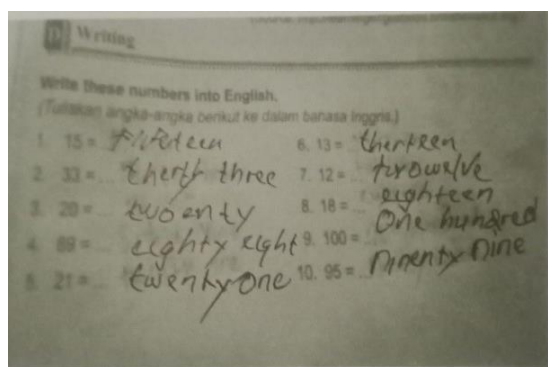 D Writing
Write these numbers into English.
(Tuliskan angka-angka berikut ke dalam bahasa Inggris.)
1. 15 = fifteen
2. 33 = ... therty three
3. 20 = ... twoenty
4. 89 = ... eighty eight
5. 21 = ... twenty one
6. 13 = ... therteen
7. 12 = ... twowelve
8. 18 = ... eighteen
9. 100 = ... One hundred
10. 95 = ... Ninenty nine